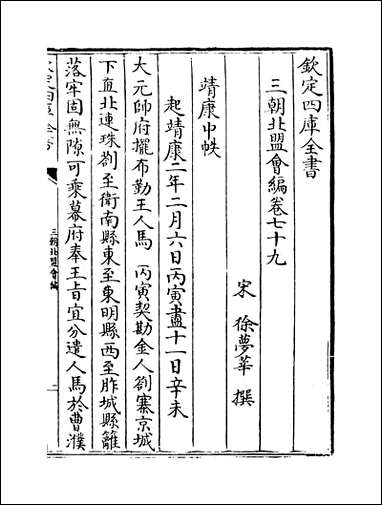 欽定四庫全書
三朝北盟會編卷七十九
宋 徐夢莘 撰
靖康中帙
起靖康二年二月六日丙寅盡十一日辛未
大元帥府擺布勤王人馬 丙寅契勘金人劄寨京城
下直北連珠劄至衛南縣東至東明縣西至胙城縣籬
落牢固無隙可乘幕府奉王旨宜分遣人馬於曹濮
三朝北盟會編